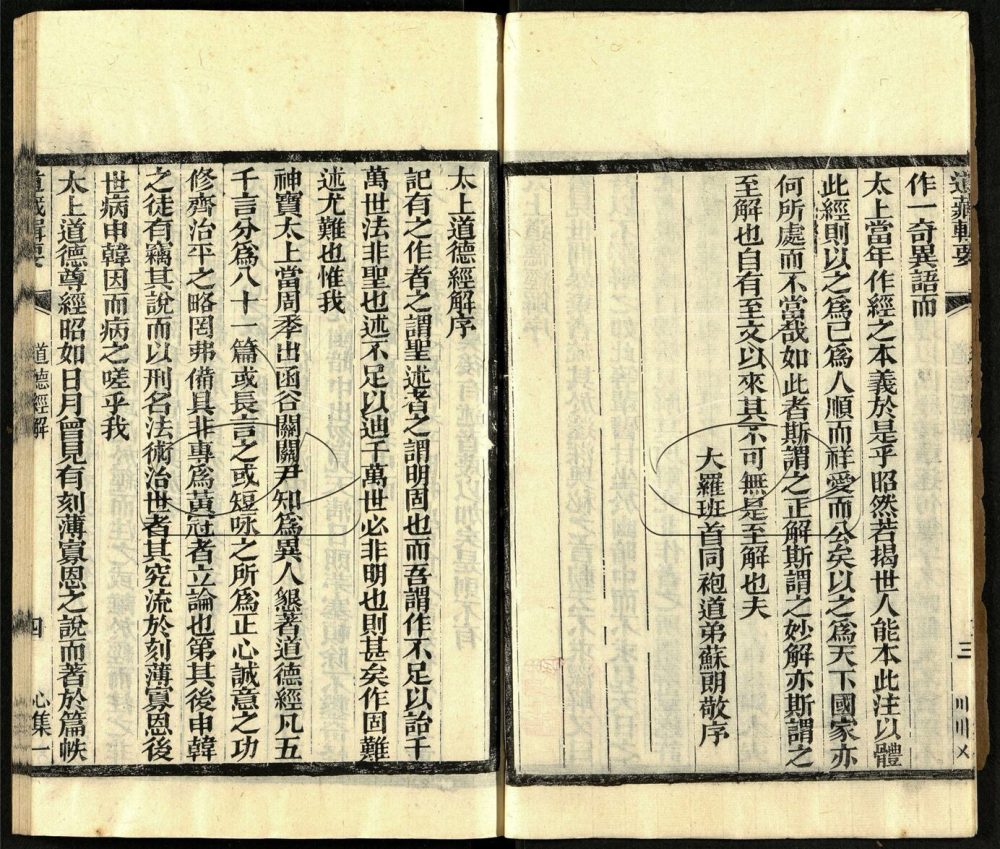 道藏輯要
三
作一奇異語而
太上當年作經之本義於是乎昭然若揭世人能本此注以體
此經則以之爲己爲人順而祥愛而公矣以之爲天下國家亦
何所處而不當哉如此者斯謂之正解斯謂之妙解亦斯謂之
至解也自有至文以來其不可無是至解也夫
大羅班首同袍道弟蘇朗敬序
太上道德經解序
記有之作者之謂聖述者之謂明固也而吾謂作不足以詒千
萬世法非聖也述不足以迪千萬世必非明也則甚矣作固難
述尤難也惟我
神寶太上當周季出函谷關關尹知爲異人懇著道德經凡五
千言分爲八十一篇或長言之或短咏之所爲正心誠意之功
修齊治平之略罔弗備具非專爲黃冠者立論也第其後申韓
之徒有竊其說而以刑名法術治世者其究流於刻薄寡恩後
世病申韓因而病之嗟乎我
太上道德尊經昭如日月曾見有刻薄寡恩之說而著於篇帙
道藏輯要
道德經解
四
心集一